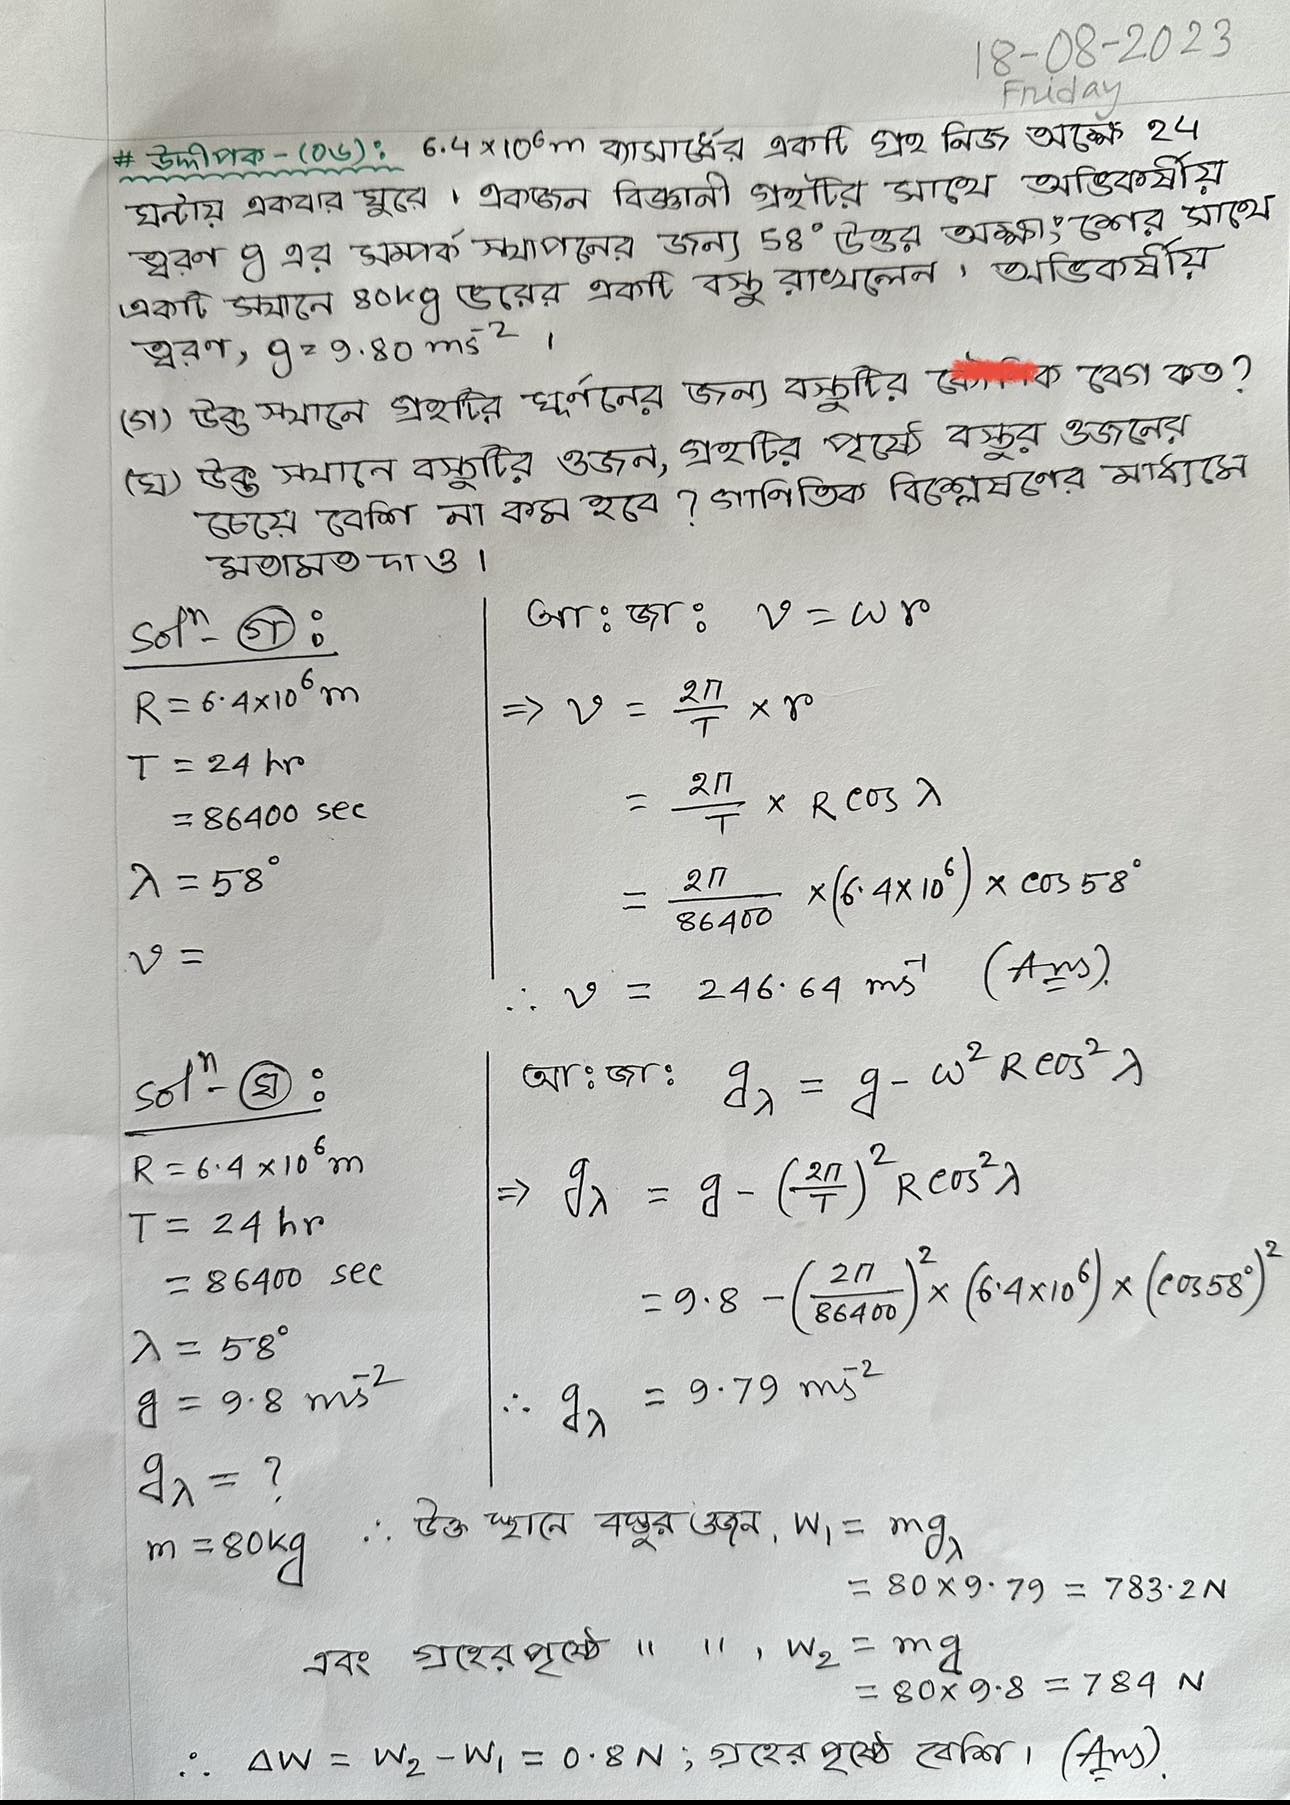 18-08-2023
Friday
# উদ্দীপক-(০৬): 6.4×10⁶m ব্যাসার্ধের একটি গ্রহ নিজ অক্ষে 24
ঘন্টায় একবার ঘুরে। একজন বিজ্ঞানী গ্রহটির সাথে অভিকর্ষীয়
ত্বরণ g এর সম্পর্ক স্থাপনের জন্য 58° উত্তর অক্ষাংশের সাথে
একটি স্থানে 80kg ভরের একটি বস্তু রাখলেন। অভিকর্ষীয়
ত্বরণ, g = 9.80 ms⁻²।
(গ) উক্ত স্থানে গ্রহটির ঘূর্ণনের জন্য বস্তুটির বেগ কত?
(ঘ) উক্ত স্থানে বস্তুটির ওজন, গ্রহটির পৃষ্ঠে বস্তুর ওজনের
চেয়ে বেশি না কম হবে? গাণিতিক বিশ্লেষণের মাধ্যমে
মতামত দাও।
Solⁿ-(গ):
R = 6.4×10⁶m
T = 24 hr
= 86400 sec
λ = 58°
v =
আ: জা: v = ωr
⇒ v = 2π/T × r
= 2π/T × R cos λ
= 2π/86400 × (6.4×10⁶) × cos 58°
∴ v = 246.64 ms⁻¹ (Ans).
Solⁿ-(ঘ):
R = 6.4×10⁶m
T = 24 hr
= 86400 sec
λ = 58°
g = 9.8 ms⁻²
gλ = ?
m = 80kg
আ: জা: gλ = g - ω² R cos² λ
⇒ gλ = g - (2π/T)² R cos² λ
= 9.8 - (2π/86400)² × (6.4×10⁶) × (cos 58°)²
∴ gλ = 9.79 ms⁻²
∴ উক্ত স্থানে বস্তুর ওজন, W₁ = mgλ
= 80×9.79 = 783.2N
এবং গ্রহের পৃষ্ঠে " ", W₂ = mg
= 80×9.8 = 784 N
∴ ΔW = W₂ - W₁ = 0.8N; গ্রহের পৃষ্ঠে বেশি। (Ans).